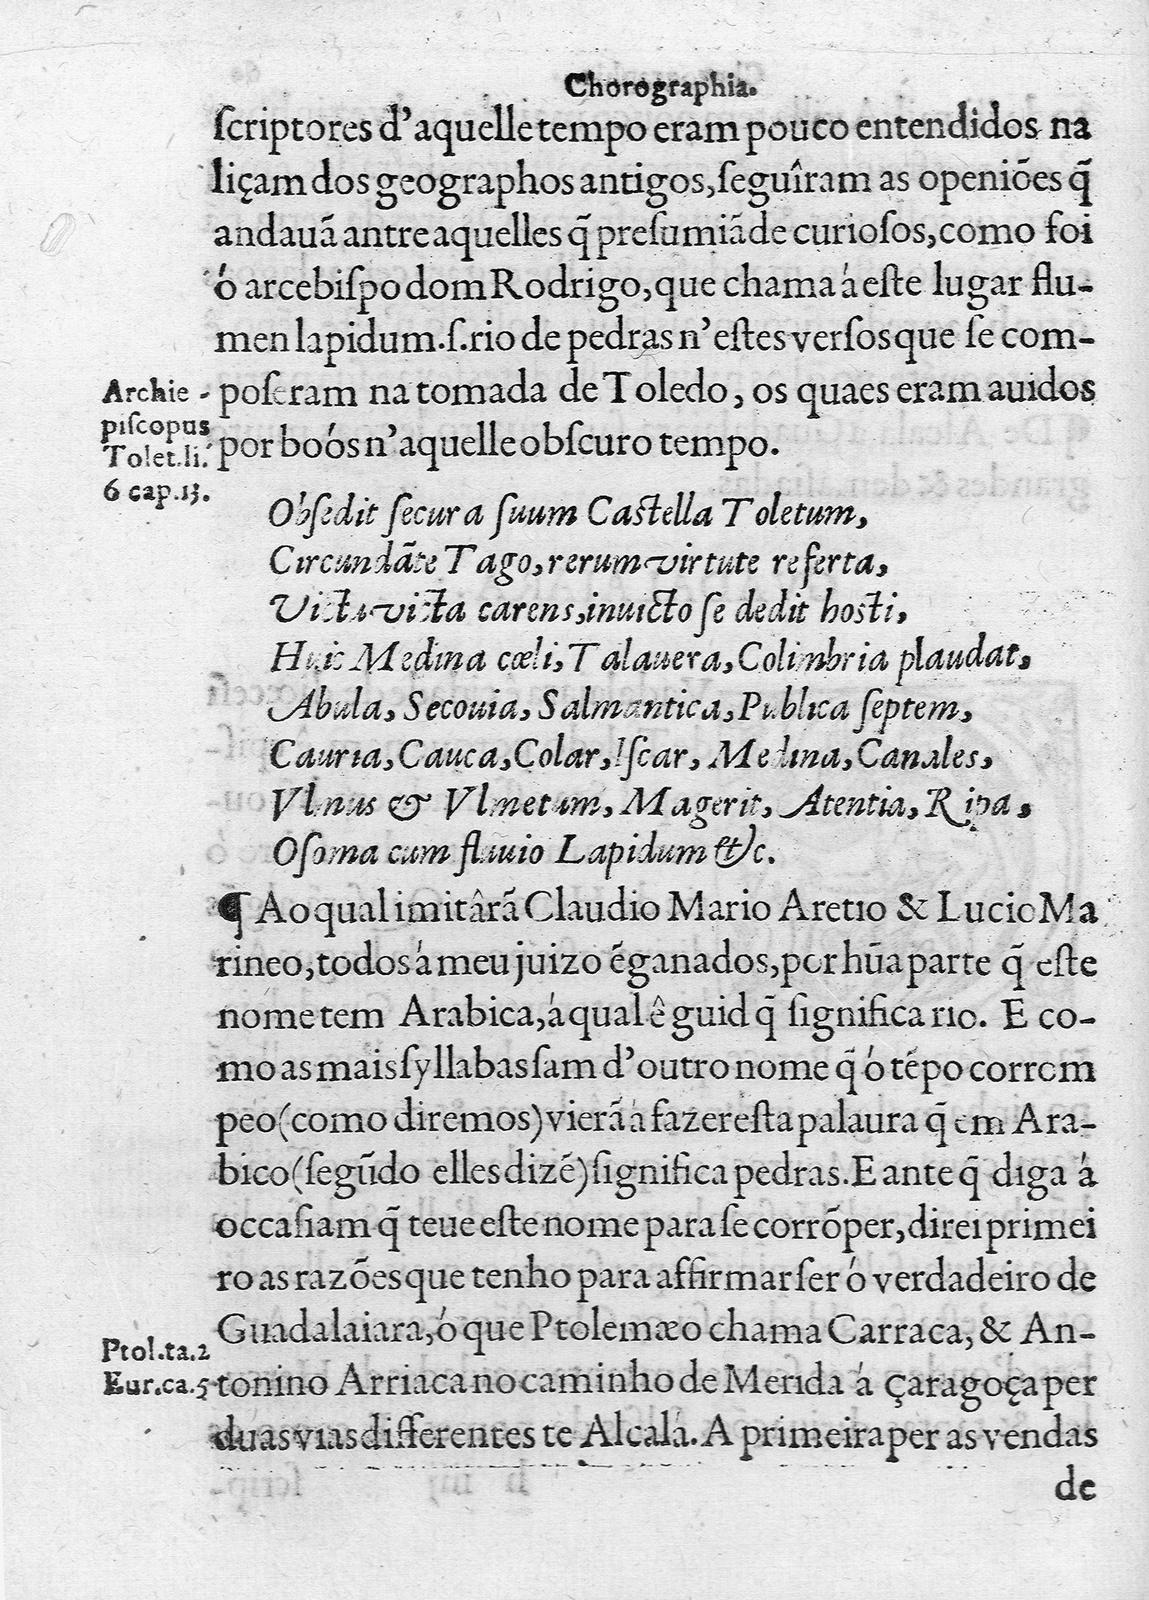 Chorographia.
ſcriptores d'aquelle tempo eram pouco entendidos na
liçam dos geographos antigos, ſeguîram as openiões q̃
andauã antre aquelles q̃ preſumiã de curioſos, como foi
ó arcebiſpo dom Rodrigo, que chama á eſte lugar flu-
men lapidum.ſ. rio de pedras n'eſtes verſos que ſe com-
poſeram na tomada de Toledo, os quaes eram auidos
por boós n'aquelle obſcuro tempo.
Archie-
piſcopus
Tolet.li.
6 cap.13.
Obſedit ſecura ſuum Caſtella Toletum,
Circundãte Tago, rerum virtute referta,
Victu victa carens, inuicto ſe dedit hoſti,
Huic Medina cœli, Talauera, Colimbria plaudat,
Abula, Secouia, Salmantica, Publica ſeptem,
Cauria, Cauca, Colar, Iſcar, Medina, Canales,
Vlmus & Vlmetum, Magerit, Atentia, Ripa,
Oſoma cum fluuio Lapidum &c.
¶ Ao qual imitârã Claudio Mario Aretio & Lucio Ma
rineo, todos á meu juizo ẽganados, por hũa parte q̃ eſte
nome tem Arabica, á qual ê guid q̃ ſignifica rio. E co-
mo as mais ſyllabas ſam d'outro nome q̃ ó tẽpo corrom
peo (como diremos) vierã á fazer eſta palaura q̃ em Ara-
bico (ſegũdo elles dizẽ) ſignifica pedras. E ante q̃ diga á
occaſiam q̃ teue eſte nome para ſe corrõper, direi primei
ro as razões que tenho para affirmar ſer ó verdadeiro de
Guadalaiara, ó que Ptolemæo chama Carraca, & An-
tonino Arriaca no caminho de Merida á Çaragoça per
duas vias differentes te Alcalá. A primeira per as vendas
Ptol.ta.2
Eur.ca.5
de